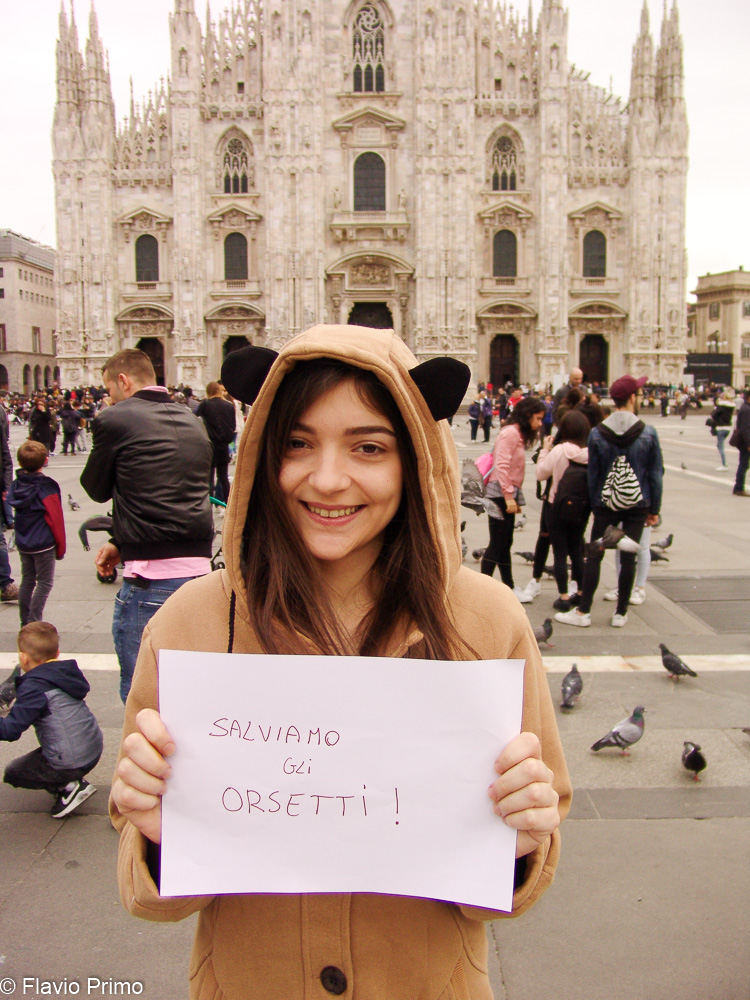 SALVIAMO
GLi
ORSETTi!
© Flavio Primo